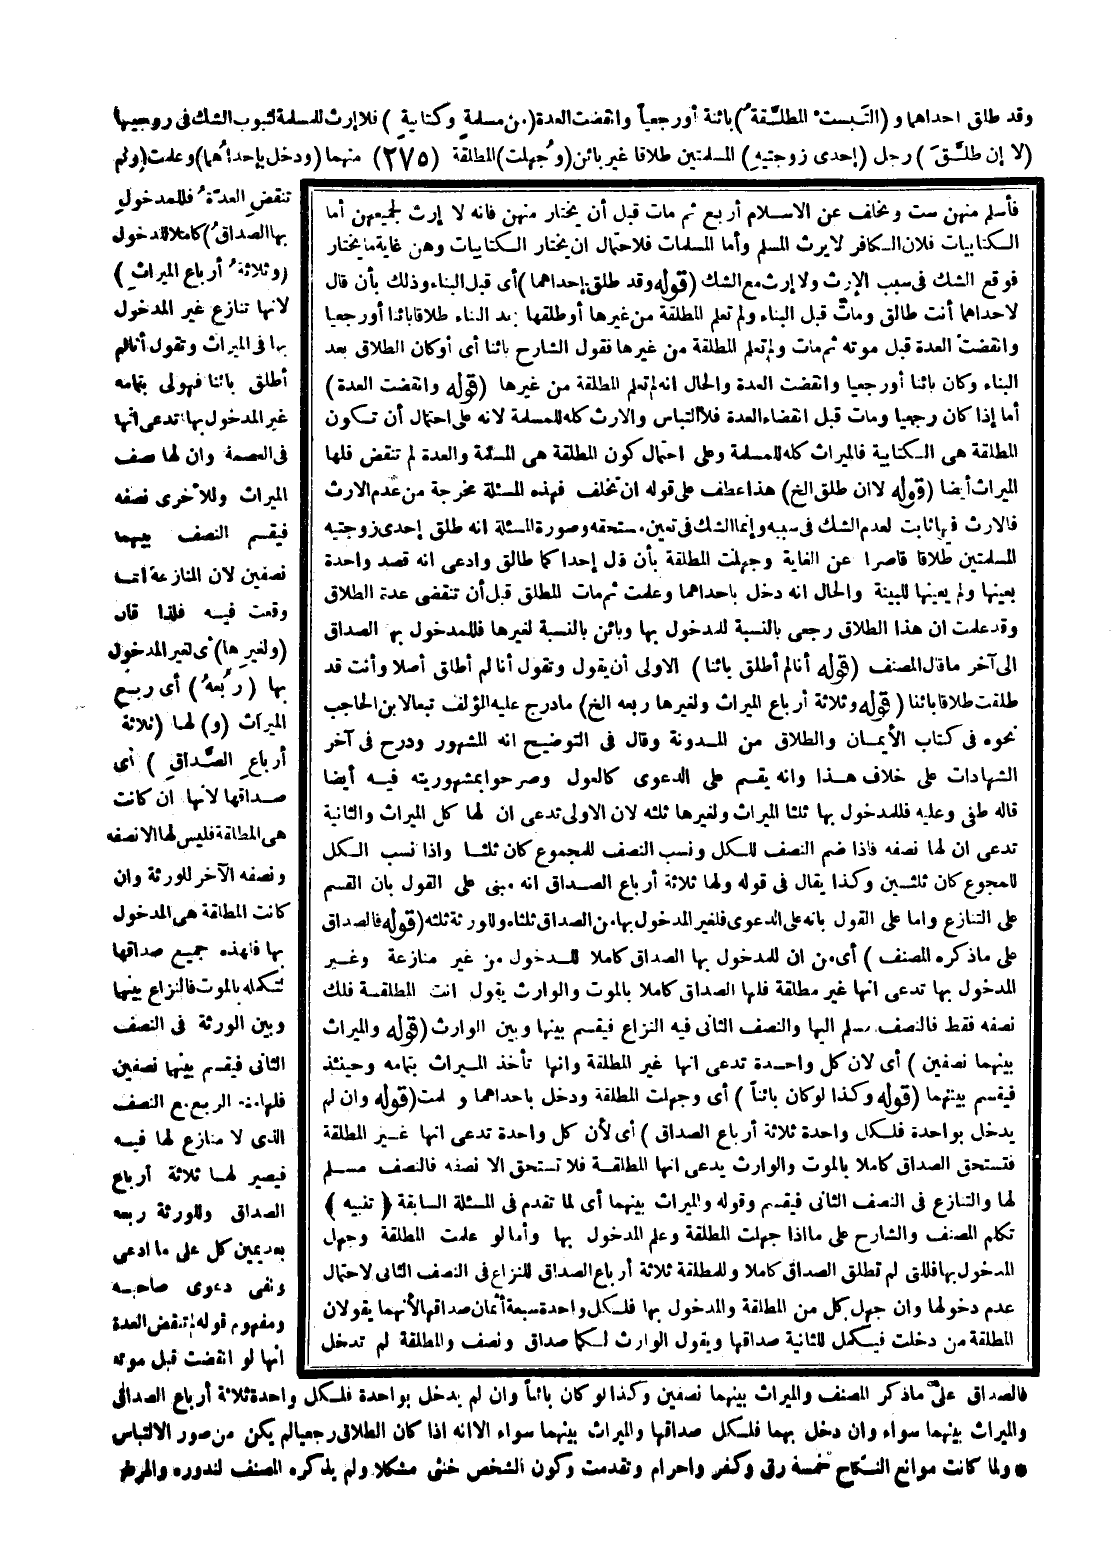 وقد طلق احداهما و (التبست المطلقة) بائنة أو رجعياً وانقضت العدة (من مسلمة وكتابية) فلا إرث للمسلمة لثبوت الشك فى زوجيتها
(لا إن طلق) رجل (إحدى زوجتيه) المسلمتين طلاقا غير بائن (وجهلت) المطلقة (٢٧٥) منهما (ودخل بإحداهما) وعلمت (ولم
تنقض العدة فللمدخول
بها الصداق) كاملا للدخول
(وثلاثة أرباع الميراث)
لانها تنازع غير المدخول
بها فى الميراث وتقول أنا لم
أطلق بائنا فهو لى بتمامه
غير المدخول بها تدعى أنها
فى العصمة وان لها نصف
الميراث وللأخرى نصفه
فيقسم النصف بينهما
نصفين لان المنازعة انما
وقعت فيه فلذا قال
(ولغيرها) أى لغير المدخول
بها (ربعه) أى ربع
الميراث (و) لها (ثلاثة
أرباع الصداق) أى
صداقها لانها ان كانت
هى المطلقة فليس لها الا نصفه
ونصفه الآخر للورثة وان
كانت المطلقة هى المدخول
بها فلهذه جميع صداقها
لتكمله بالموت فالنزاع بينها
وبين الورثة فى النصف
الثانى فيقسم بينها نصفين
فلها منه الربع مع النصف
الذى لا منازع لها فيه
فيصير لها ثلاثة أرباع
الصداق وللورثة ربعه
بعد يمين كل على ما ادعى
ونفى دعوى صاحبه
ومفهوم قوله لم تنقض العدة
أنها لو انقضت قبل موته
فأسلم منهن ست وتخلف عن الاسلام أربع ثم مات قبل أن يختار منهن فانه لا إرث لجميعهن أما
الكتابيات فلان الكافر لا يرث المسلم وأما المسلمات فلاحتمال ان يختار الكتابيات وهن غاية ما يختار
فوقع الشك فى سبب الإرث ولا إرث مع الشك (قوله وقد طلق إحداهما) أى قبل البناء وذلك بأن قال
لاحداهما أنت طالق ومات قبل البناء ولم تعلم المطلقة من غيرها أو طلقها بعد البناء طلاقا بائنا أو رجعيا
وانقضت العدة قبل موته ثم مات ولم تعلم المطلقة من غيرها فقول الشارح بائنا أى أو كان الطلاق بعد
البناء وكان بائنا أو رجعيا وانقضت العدة والحال انه لم تعلم المطلقة من غيرها (قوله وانقضت العدة)
أما إذا كان رجعيا ومات قبل انقضاء العدة فلا التباس والارث كله للمسلمة لانه على احتمال أن تكون
المطلقة هى الكتابية فالميراث كله للمسلمة وعلى احتمال كون المطلقة هى المسلمة والعدة لم تنقض فلها
الميراث أيضا (قوله لا ان طلق الخ) هذا عطف على قوله ان تخلف فهذه المسئلة مخرجة من عدم الارث
فالارث فيها ثابت لعدم الشك فى سببه وإنما الشك فى تعين مستحقه وصورة المسئلة انه طلق إحدى زوجتيه
المسلمتين طلاقا قاصرا عن الغاية وجهلت المطلقة بأن قال إحداكما طالق وادعى انه قصد واحدة
بعينها ولم يعينها للبينة والحال انه دخل باحداهما وعلمت ثم مات المطلق قبل أن تنقضى عدة الطلاق
وقد علمت ان هذا الطلاق رجعى بالنسبة للمدخول بها وبائن بالنسبة لغيرها فللمدخول بها الصداق
الى آخر ما قال المصنف (قوله أنا لم أطلق بائنا) الاولى أن يقول وتقول أنا لم أطلق أصلا وأنت قد
طلقت طلاقا بائنا (قوله وثلاثة أرباع الميراث ولغيرها ربعه الخ) ما درج عليه المؤلف تبعا لابن الحاجب
نحوه فى كتاب الأيمان والطلاق من المدونة وقال فى التوضيح انه المشهور ودرج فى آخر
الشهادات على خلاف هذا وانه يقسم على الدعوى كالعول وصرحوا بمشهوريته فيه أيضا
قاله طفى وعليه فللمدخول بها ثلثا الميراث ولغيرها ثلثه لان الاولى تدعى ان لها كل الميراث والثانية
تدعى ان لها نصفه فاذا ضم النصف للكل ونسب النصف للمجموع كان ثلثا واذا نسب الكل
للمجوع كان ثلثين وكذا يقال فى قوله ولها ثلاثة أرباع الصداق انه مبنى على القول بان القسم
على التنازع واما على القول بانه على الدعوى فلغير المدخول بها من الصداق ثلثاه وللورثة ثلثه (قوله فالصداق
على ما ذكره المصنف) أى من ان للمدخول بها الصداق كاملا للدخول من غير منازعة وغير
المدخول بها تدعى انها غير مطلقة فلها الصداق كاملا بالموت والوارث يقول انت المطلقة فلك
نصفه فقط فالنصف مسلم اليها والنصف الثانى فيه النزاع فيقسم بينها وبين الوارث (قوله والميراث
بينهما نصفين) أى لان كل واحدة تدعى انها غير المطلقة وانها تأخذ الميراث بتمامه وحينئذ
فيقسم بينهما (قوله وكذا لو كان بائناً) أى وجهلت المطلقة ودخل باحداهما وعلمت (قوله وان لم
يدخل بواحدة فلكل واحدة ثلاثة أرباع الصداق) أى لأن كل واحدة تدعى انها غير المطلقة
فتستحق الصداق كاملا بالموت والوارث يدعى انها المطلقة فلا تستحق الا نصفه فالنصف مسلم
لها والتنازع فى النصف الثانى فيقسم وقوله والميراث بينهما أى لما تقدم فى المسئلة السابقة (تنبيه)
تكلم المصنف والشارح على ما اذا جهلت المطلقة وعلم المدخول بها وأما لو علمت المطلقة وجهل
المدخول بها فللتى لم تطلق الصداق كاملا وللمطلقة ثلاثة أرباع الصداق للنزاع فى النصف الثانى لاحتمال
عدم دخولها وان جهل كل من المطلقة والمدخول بها فلكل واحدة سبعة أثمان صداقها لأنهما يقولان
المطلقة من دخلت فيكمل للثانية صداقها ويقول الوارث لكما صداق ونصف والمطلقة لم تدخل
فالصداق على ما ذكر المصنف والميراث بينهما نصفين وكذا لو كان بائناً وان لم يدخل بواحدة فلكل واحدة ثلاثة أرباع الصداق
والميراث بينهما سواء وان دخل بهما فلكل صداقها والميراث بينهما سواء الا انه اذا كان الطلاق رجعيا لم يكن من صور الالتباس
* ولما كانت موانع النكاح خمسة رق وكفر واحرام وتقدمت وكون الشخص خنثى مشكلا ولم يذكره المصنف لندوره والمرض